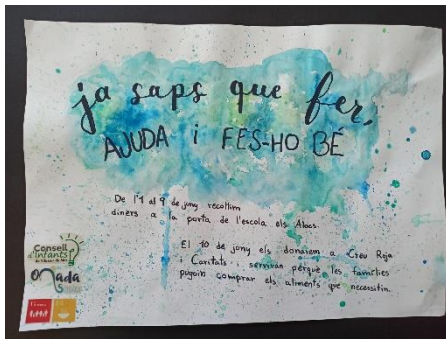 ja saps que fer,
AJUDA i FES-HO BÉ
De l'1 al 9 de juny recollim
diners a la porta de l'escola els Alocs.
El 10 de juny els donarem a Creu Roja
i Caritats i serviran perquè les famílies
puguin comprar els aliments que necessitin.
Consell
d'Infants
Onada